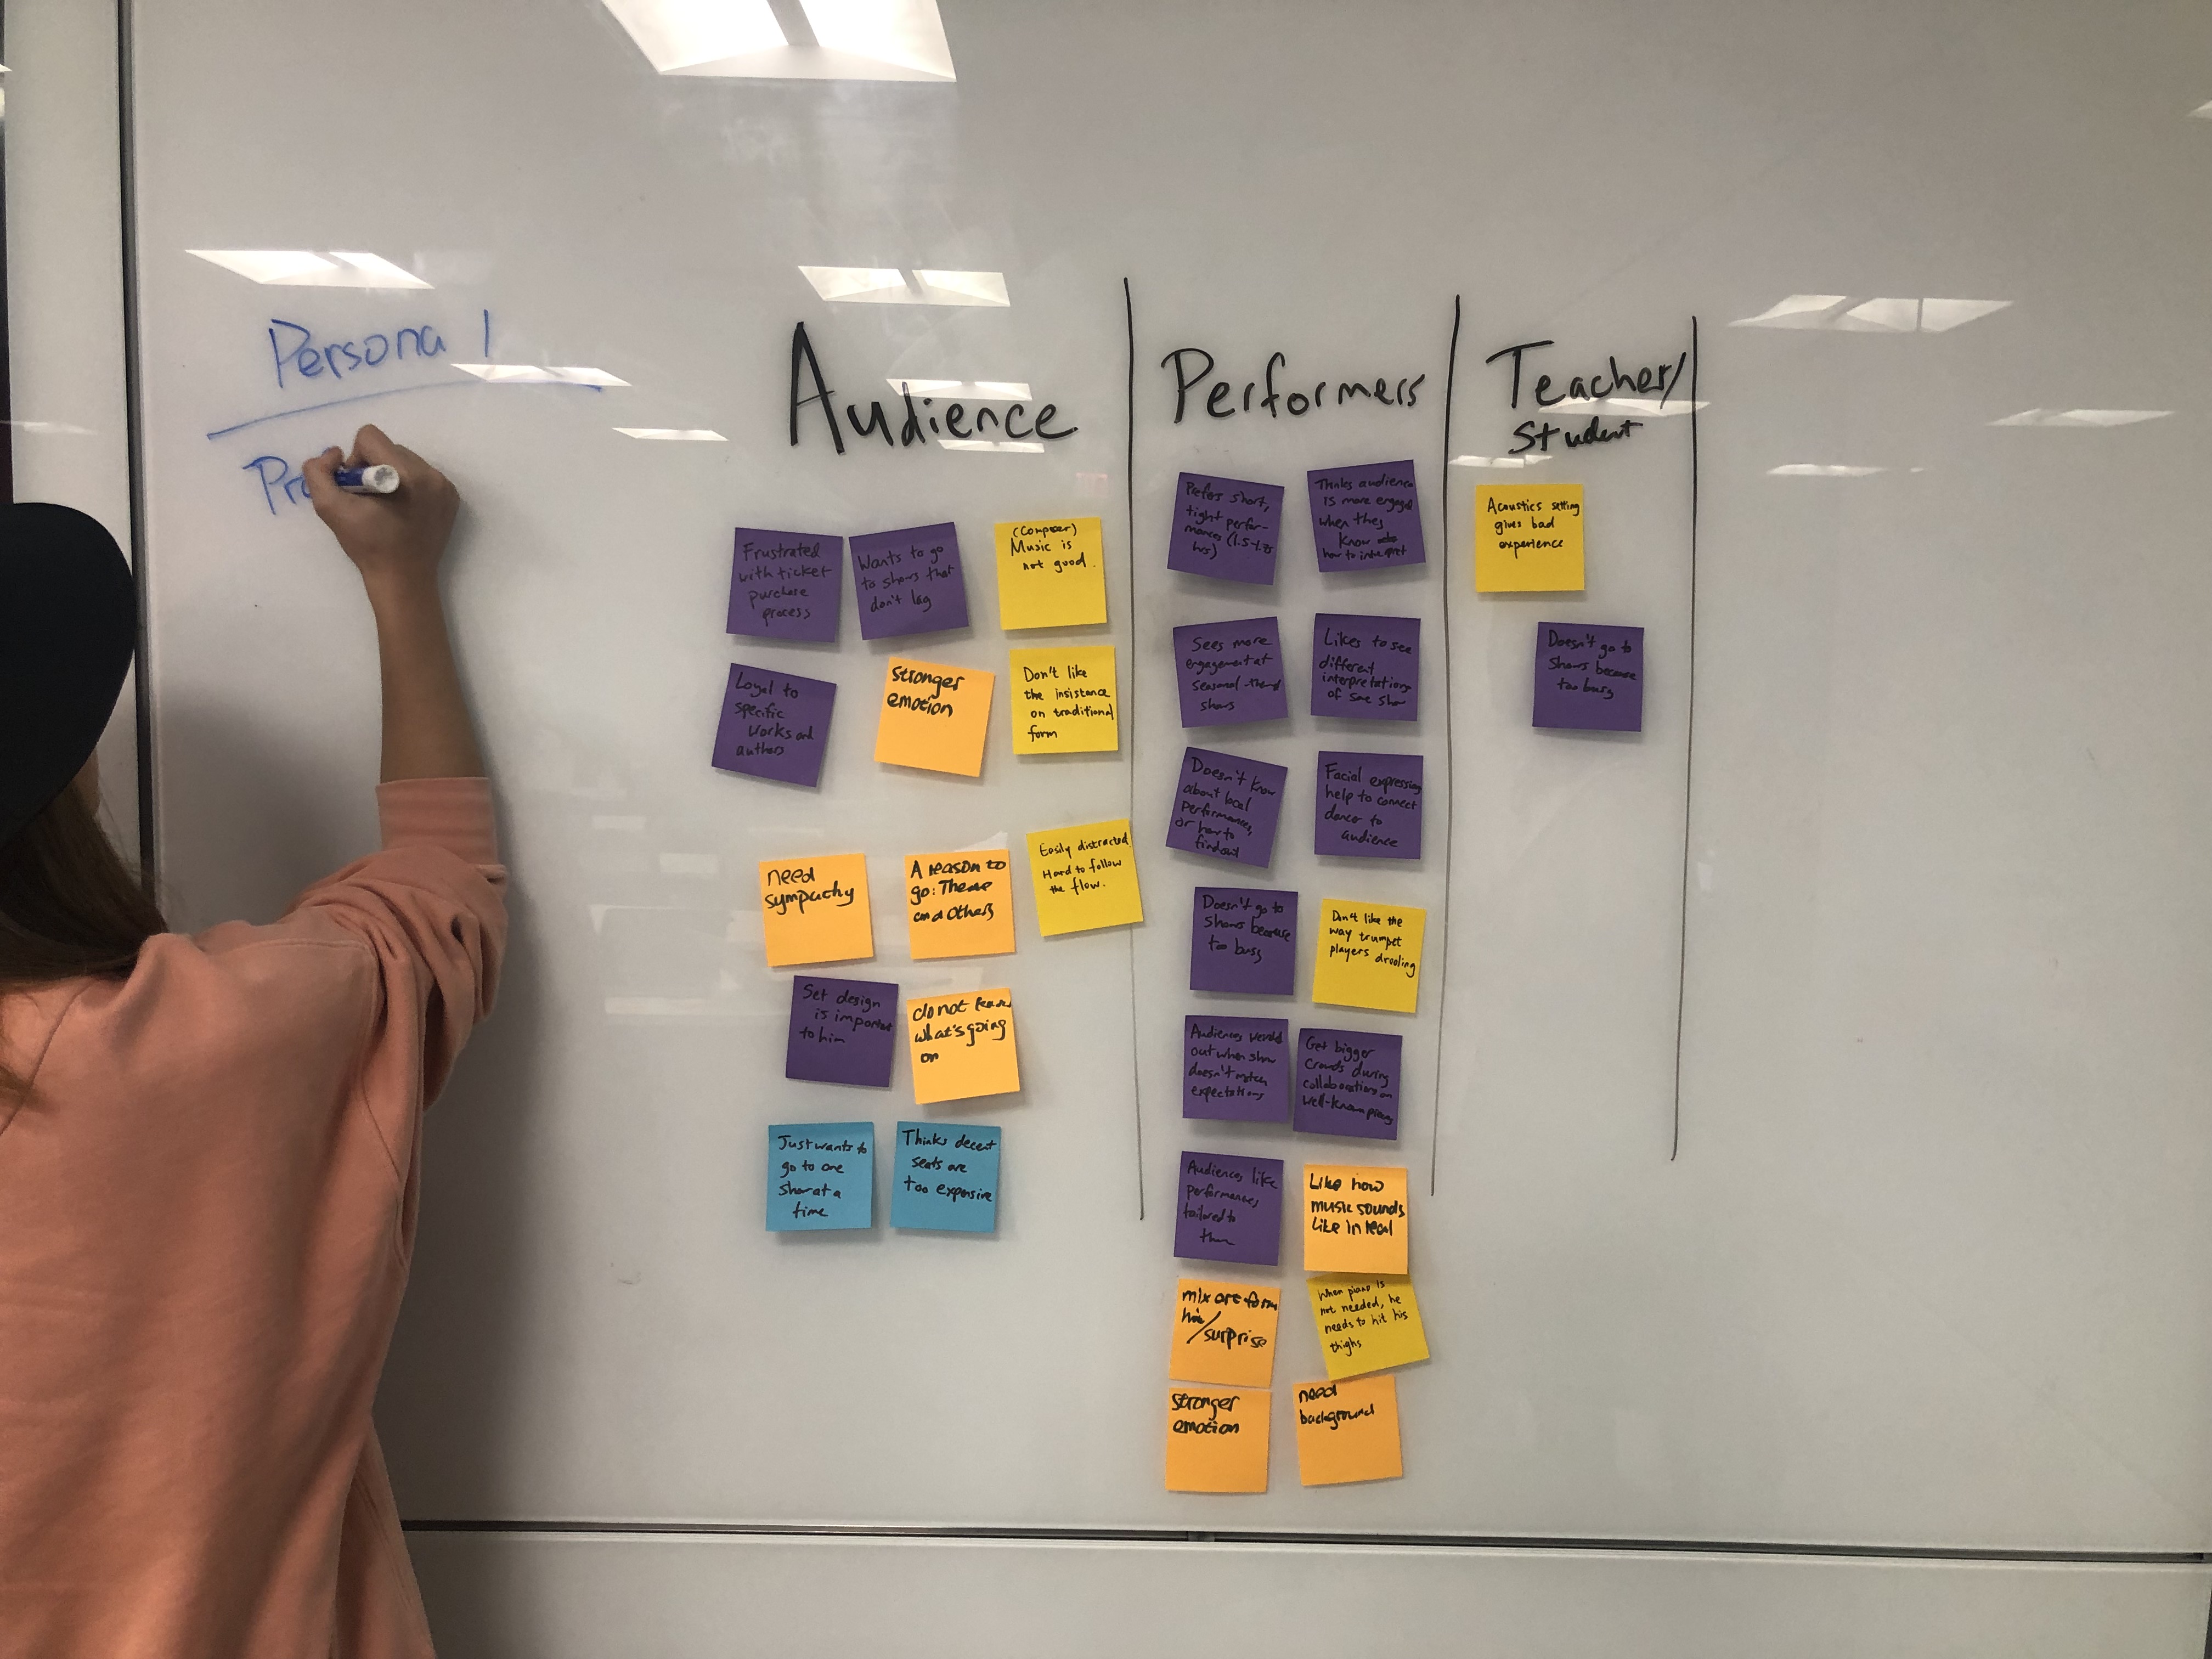 Persona 1
Pr
Audience
Frustrated
with ticket
purchase
process
Wants to go
to shows that
don't lag
(Composer)
Music is
not good.
Loyal to
specific
works and
authors
stronger
emotion
Don't like
the insistance
on traditional
form
need
sympathy
A reason to
go: Theme
and others
Easily distracted
Hard to follow
the flow.
Set design
is important
to him
do not
what's going
on
Just wants to
go to one
show at a
time
Thinks decent
seats are
too expensive
Performers
Prefers short,
tight perfor-
mances (1.5-1.75
hrs)
Thinks audience
is more engaged
when they
know
how to interpret
Sees more
engagement at
seasonal-themed
shows
Likes to see
different
interpretations
of same show
Doesn't know
about local
performances,
or how to
find out
Facial expressions
help to connect
dancer to
audience
Doesn't go to
shows because
too busy
Don't like the
way trumpet
players drooling
Audiences weirded
out when show
doesn't match
expectations
Get bigger
crowds during
collaborations on
well-known pieces
Audiences like
performances
tailored to
them
Like how
music sounds
like in real
mix art form
/surprise
When piano is
not needed, he
needs to hit his
thighs
stronger
emotion
need
background
Teacher/
Student
Acoustics setting
gives bad
experience
Doesn't go to
shows because
too busy